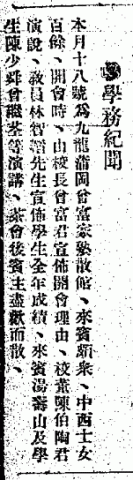 學務紀聞
本月十八號爲九龍蒲岡曾富家塾散館、來賓頗衆、中西士女
百餘、開會時、由校長曾富君宣佈開會理由、校董陳伯陶君
演說、敎員林智譜先生宣佈學生全年成績、來賓湯壽山及學
生陳少舜曾繼奎等演講、茶會後賓主盡歡而散、